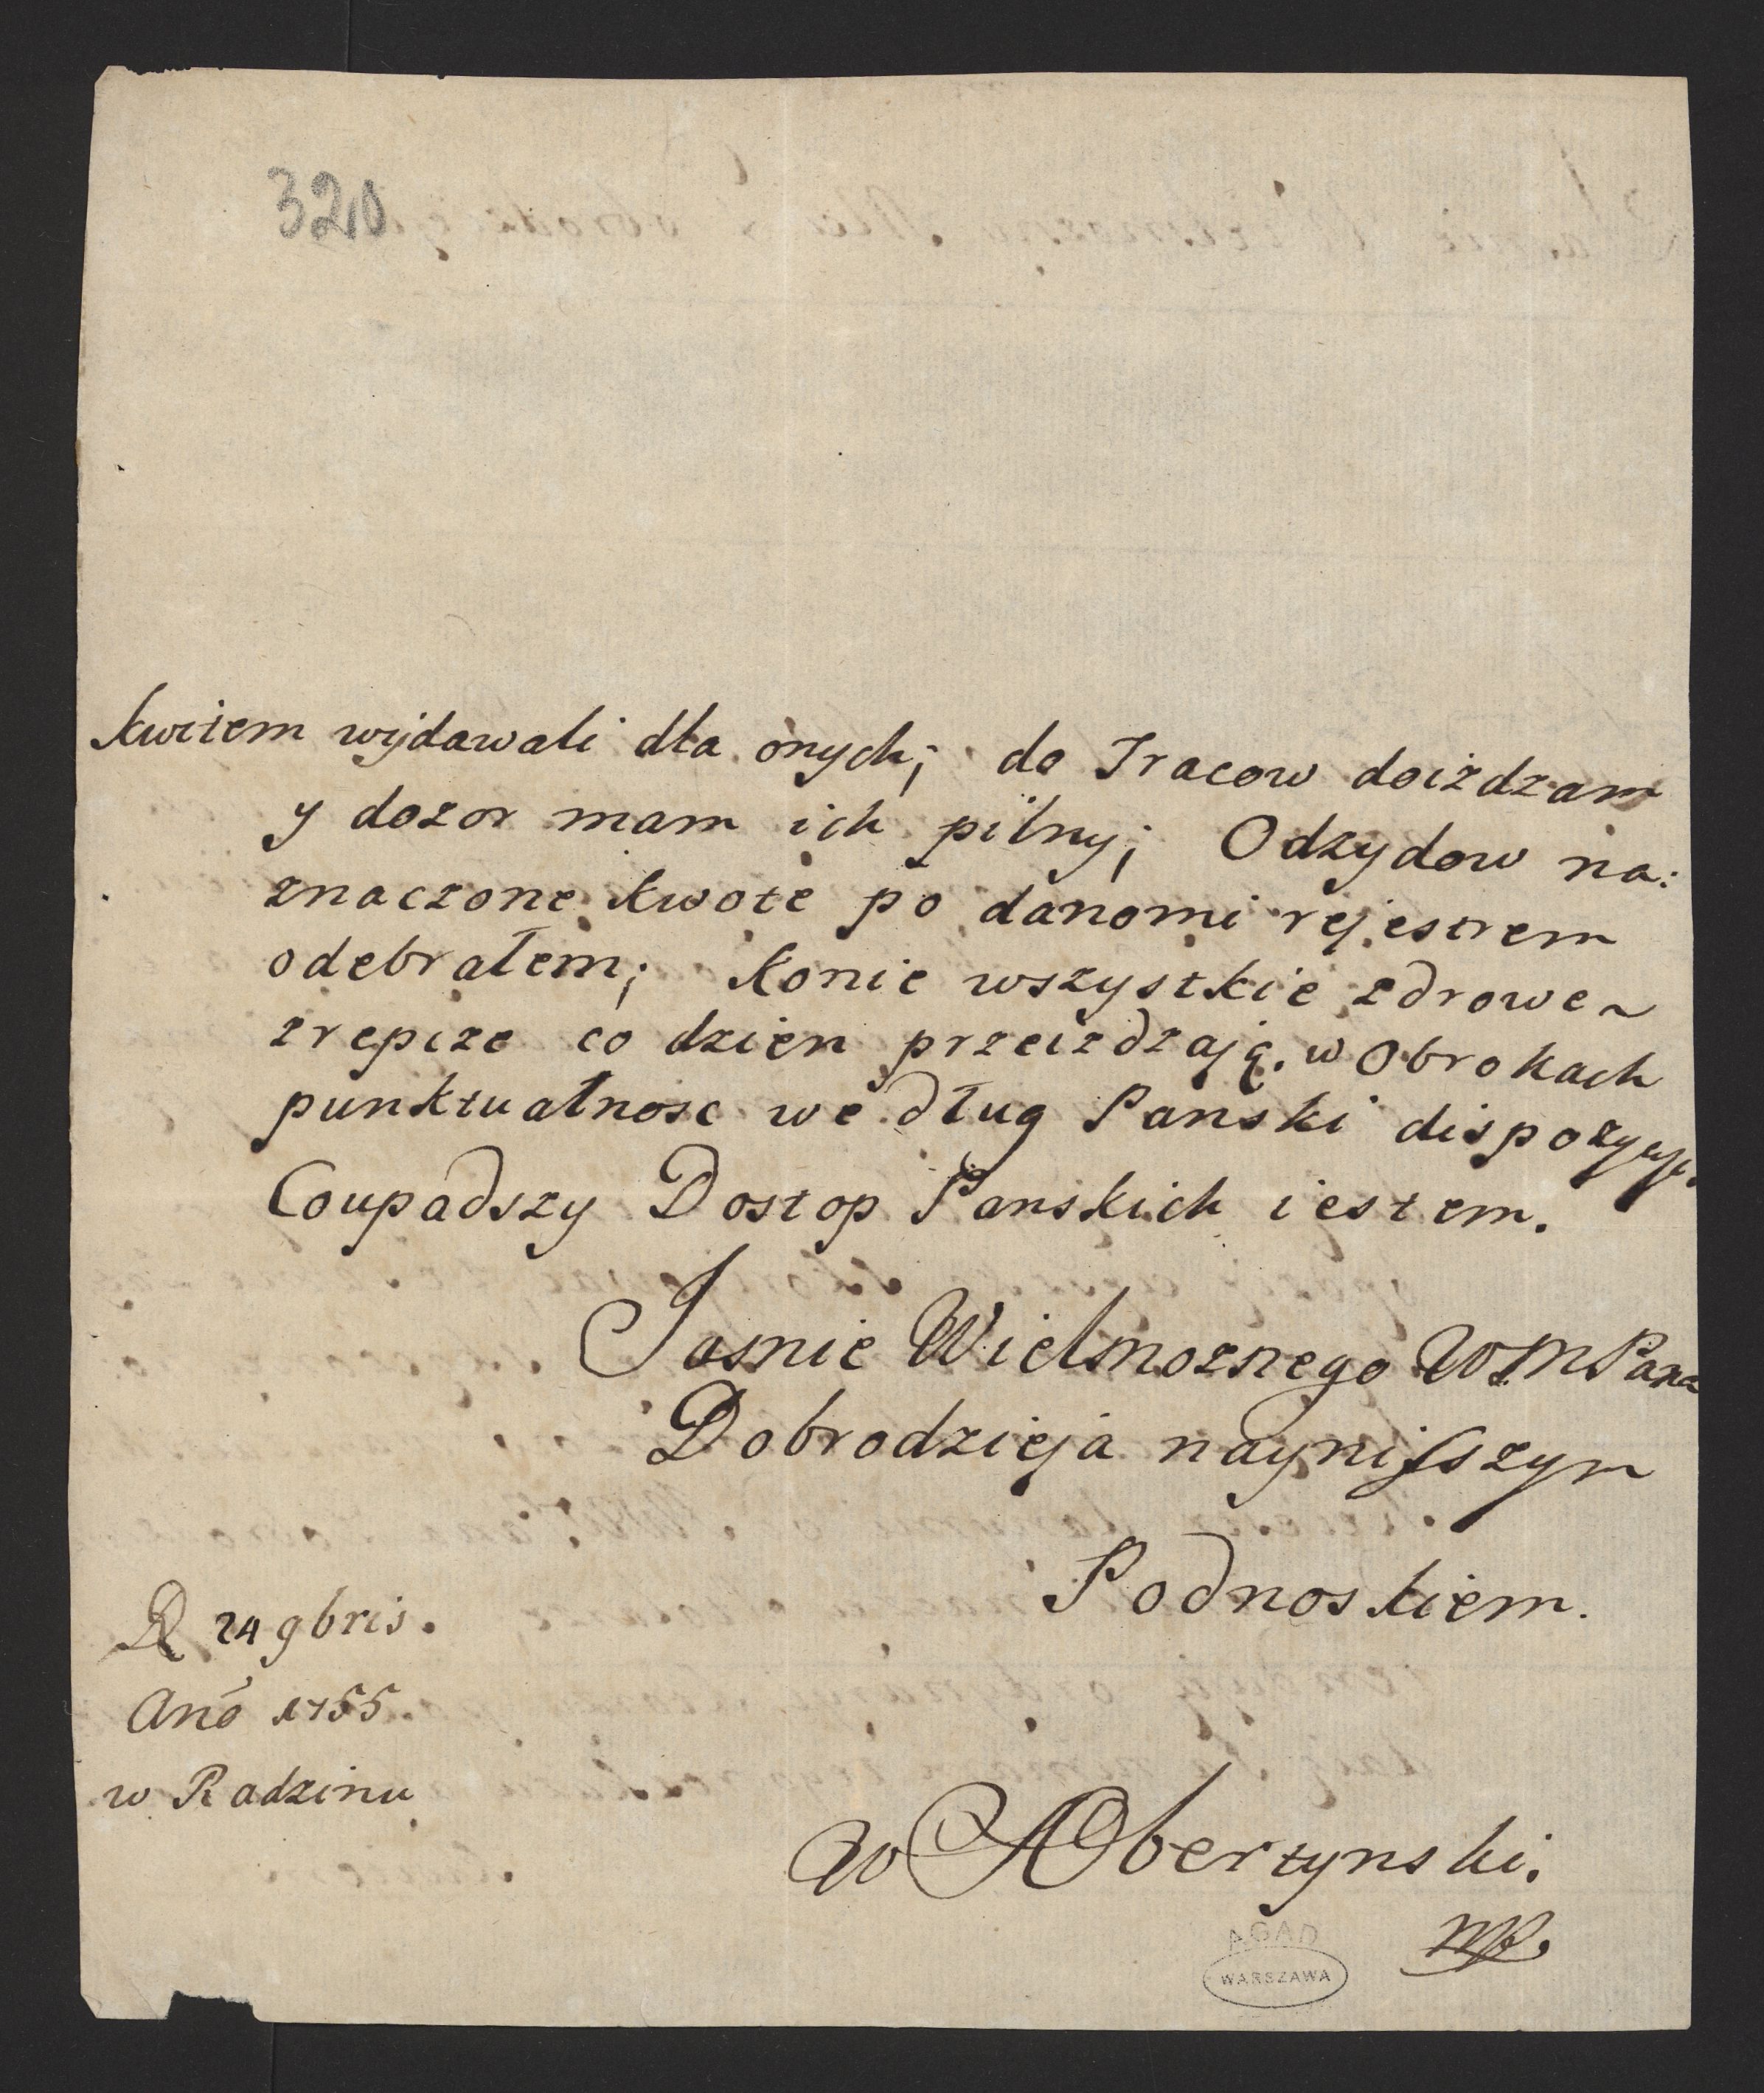 320
kwitem wydawali dla onych; do Tracow doiżdzam
y dozor mam ich pilny; Odzydow na:
znaczone kwote po danomi rejestrem
odebrałem; Konie wszystkie zdrowe
zrepcze co dzien przeizdzają. w Obrokach
punktualnosc we dług Panski dispozycyi.
Coupadszy Dostop Panskich iestem.
Jasnie Wielmoznego WMPana
Dobrodzieja nayniższym
Podnoskiem.
D 24 9bris.
Ano 1755.
w Radzinu
W Obertynski.
mp.
AGAD
WARSZAWA